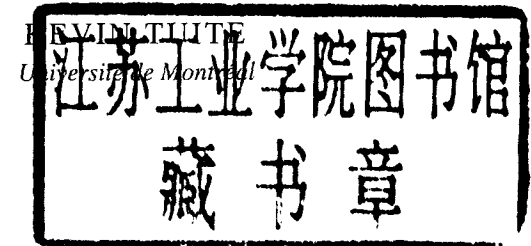 KEVIN TUITE
Université de Montréal
江苏工业学院图书馆
藏书章